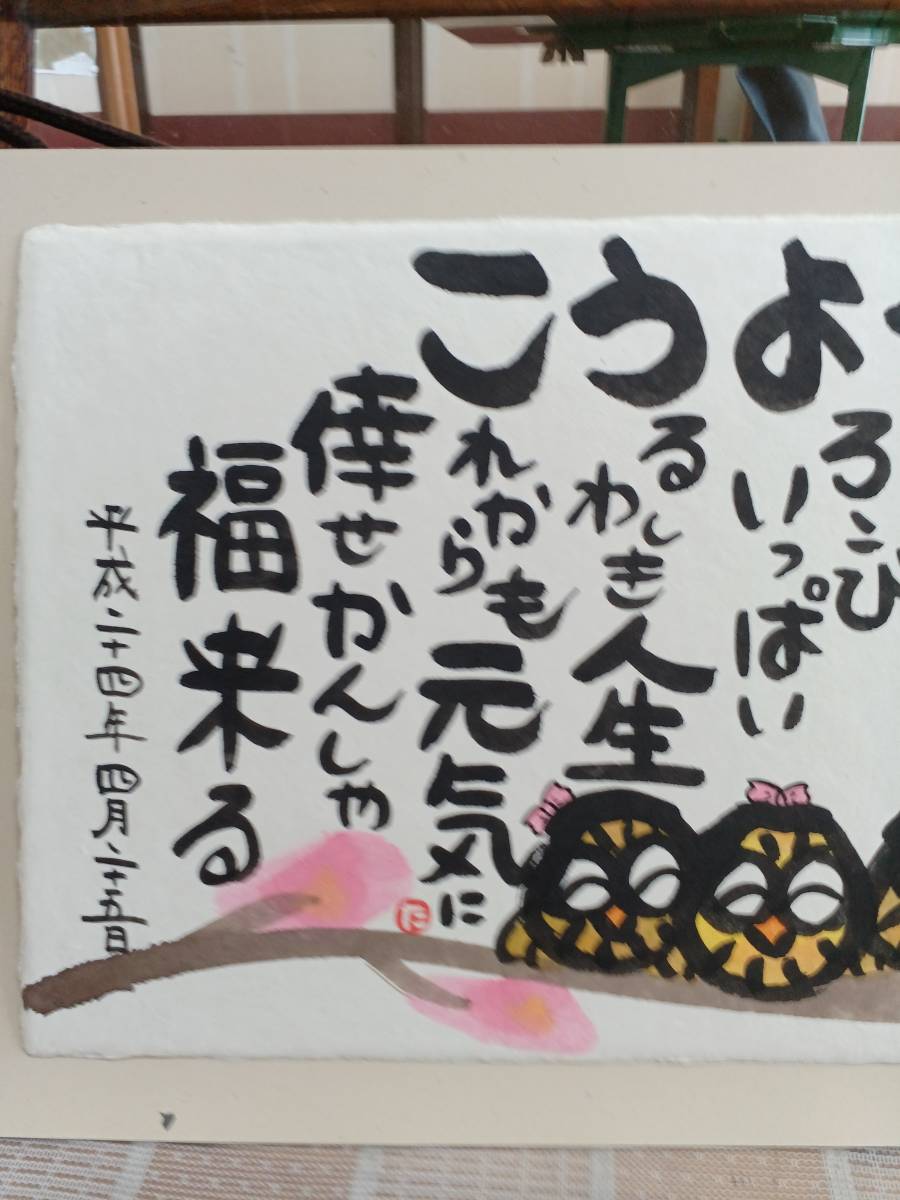 よろこび
いっぱい
うるわしき人生
これからも元気に
倖せかんしゃ
福来る
平成二十四年四月二十五日